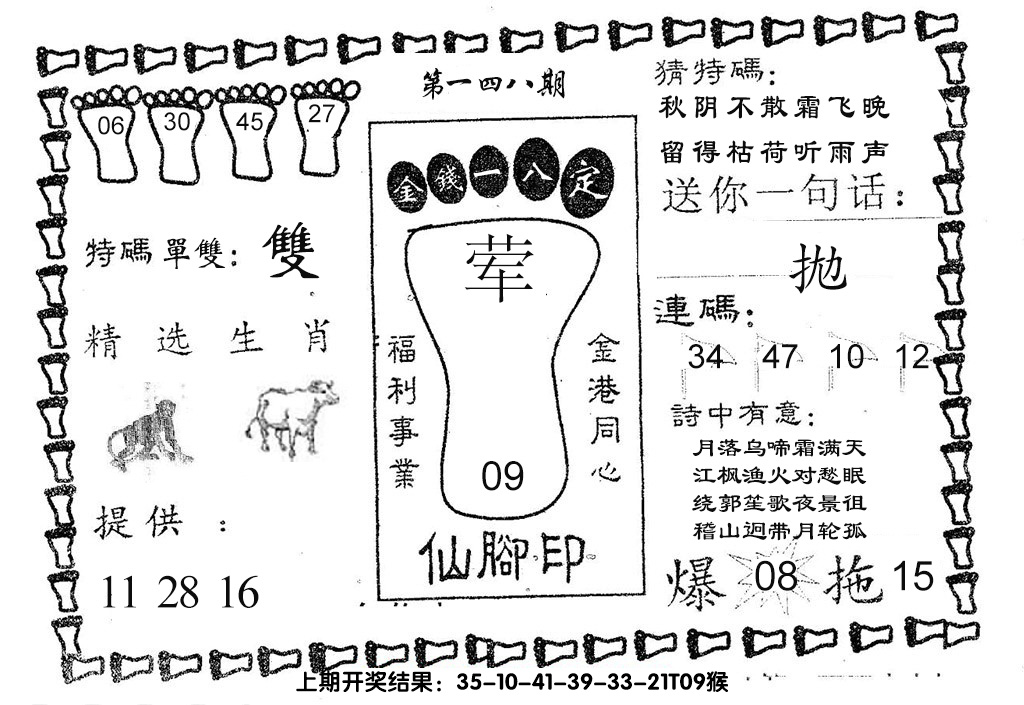 第一四八期
06 30 45 27
特碼單雙：雙
精选生肖
提供：
11 28 16
金錢一八定
荤
福利事業
金港同心
09
仙腳印
猜特碼：
秋阴不散霜飞晚
留得枯荷听雨声
送你一句话：
抛
連碼：
34 47 10 12
詩中有意：
月落乌啼霜满天
江枫渔火对愁眠
绕郭笙歌夜景徂
稽山迥带月轮孤
爆 08 拖 15
上期开奖结果：35-10-41-39-33-21T09猴